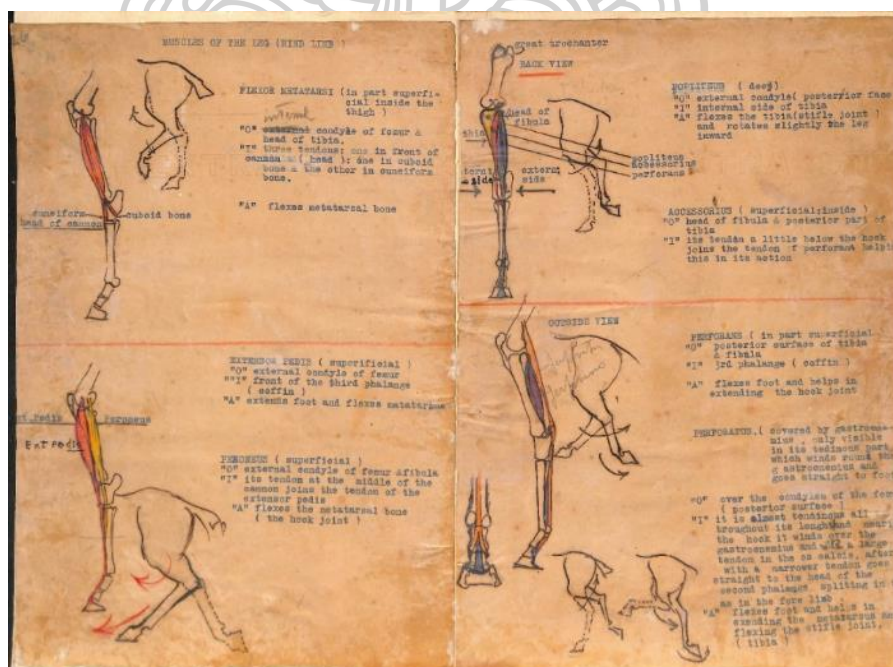 MUSCLES OF THE LEG (HIND LIMB)
FLEXOR METATARSI (in part superfi-
cial inside the
thigh )
internal
"O" external condyle of femur &
head of tibia.
"I" three tendons: one in front of
cannon ( head ): one in cuboid
bone & the other in cuneiform
bone.
"A" flexes metatarsal bone
cuneiform
cuboid bone
head of cannon
EXTENSOR PEDIS ( superificial )
"O" external condyle of femur
"I" front of the third phalange
( coffin )
"A" extends foot and flexes metatarsus
Pedis
Peroneus
Ext Pedis
PERONEUS ( superficial )
"O" external condyle of femur &fibula
"I" its tendon at the middle of the
cannon joins the tendon of the
extensor pedis
"A" flexes the metatarsal bone
( the hock joint )
great trochanter
BACK VIEW
head of
fibula
popliteus
accessorius
perforans
side
extern
side
POPLITEUS ( deep)
"O" external condyle( posterior face
"I" internal side of tibia
"A" flexes the tibia(stifle joint )
and rotates slightly the leg
inward
ACCESSORIUS ( superficial:inside )
"O" head of fibula & posterior part of
tibia
"I" its tendon a little below the hock
joins the tendon of perforant helping
this in its action
OUTSIDE VIEW
PERFORANS ( in part superficial
"O" posterior surface of tibia
& fibula
"I" 3rd phalange ( coffin )
"A" flexes foot and helps in
extending the hock joint
PERFORATUS.( covered by gastrocne-
mius . only visible
in its tedinous part
which winds round the
g astrocnemius and
goes straight to foot
"O" over the condyles of the
( posterior surface )
"I" it is almost tendinous all
troughout its lenght and near
the hock it winds over the
gastrocnemius and a large
tendon in the os calcis, after
with a narrower tendon goes
straight to the head of the
second phalange spliting in
as in the fore limb
"A" flexes foot and helps in
exending the metatarsus and
flexing the stifle joint.
( tibia )